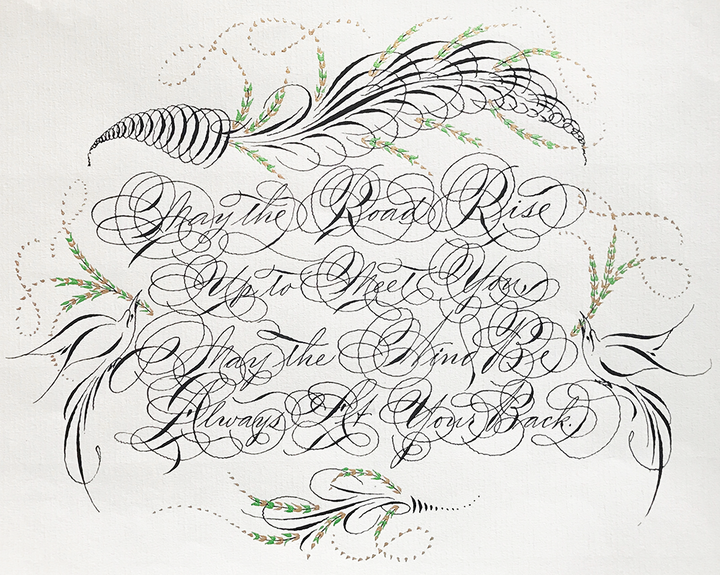 May the Road Rise
Up to Meet You,
May the Wind Be
Always At Your Back.